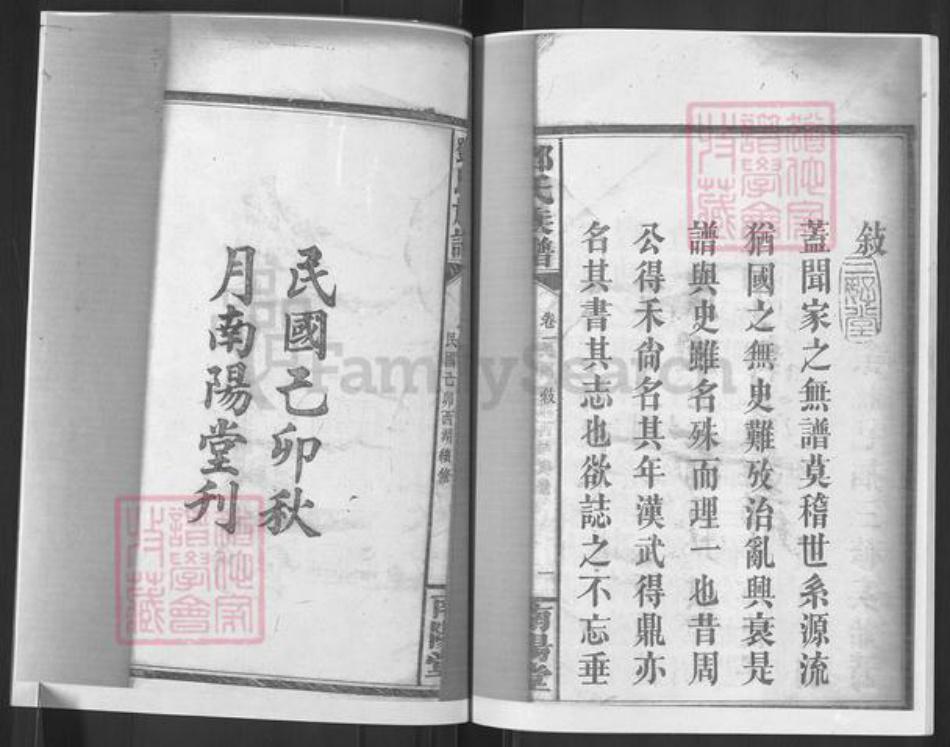 敍
蓋聞家之無譜莫稽世系源流
猶國之無史難攷治亂興衰是
譜與史雖名殊而理一也昔周
公得禾尙名其年漢武得鼎亦
名其書其志也欲誌之不忘垂
鄧氏族譜
卷一
敍
南陽堂
鄧氏族譜
民國己卯西湖續修
南陽堂
民國己卯秋
月南陽堂刊
FamilySearch